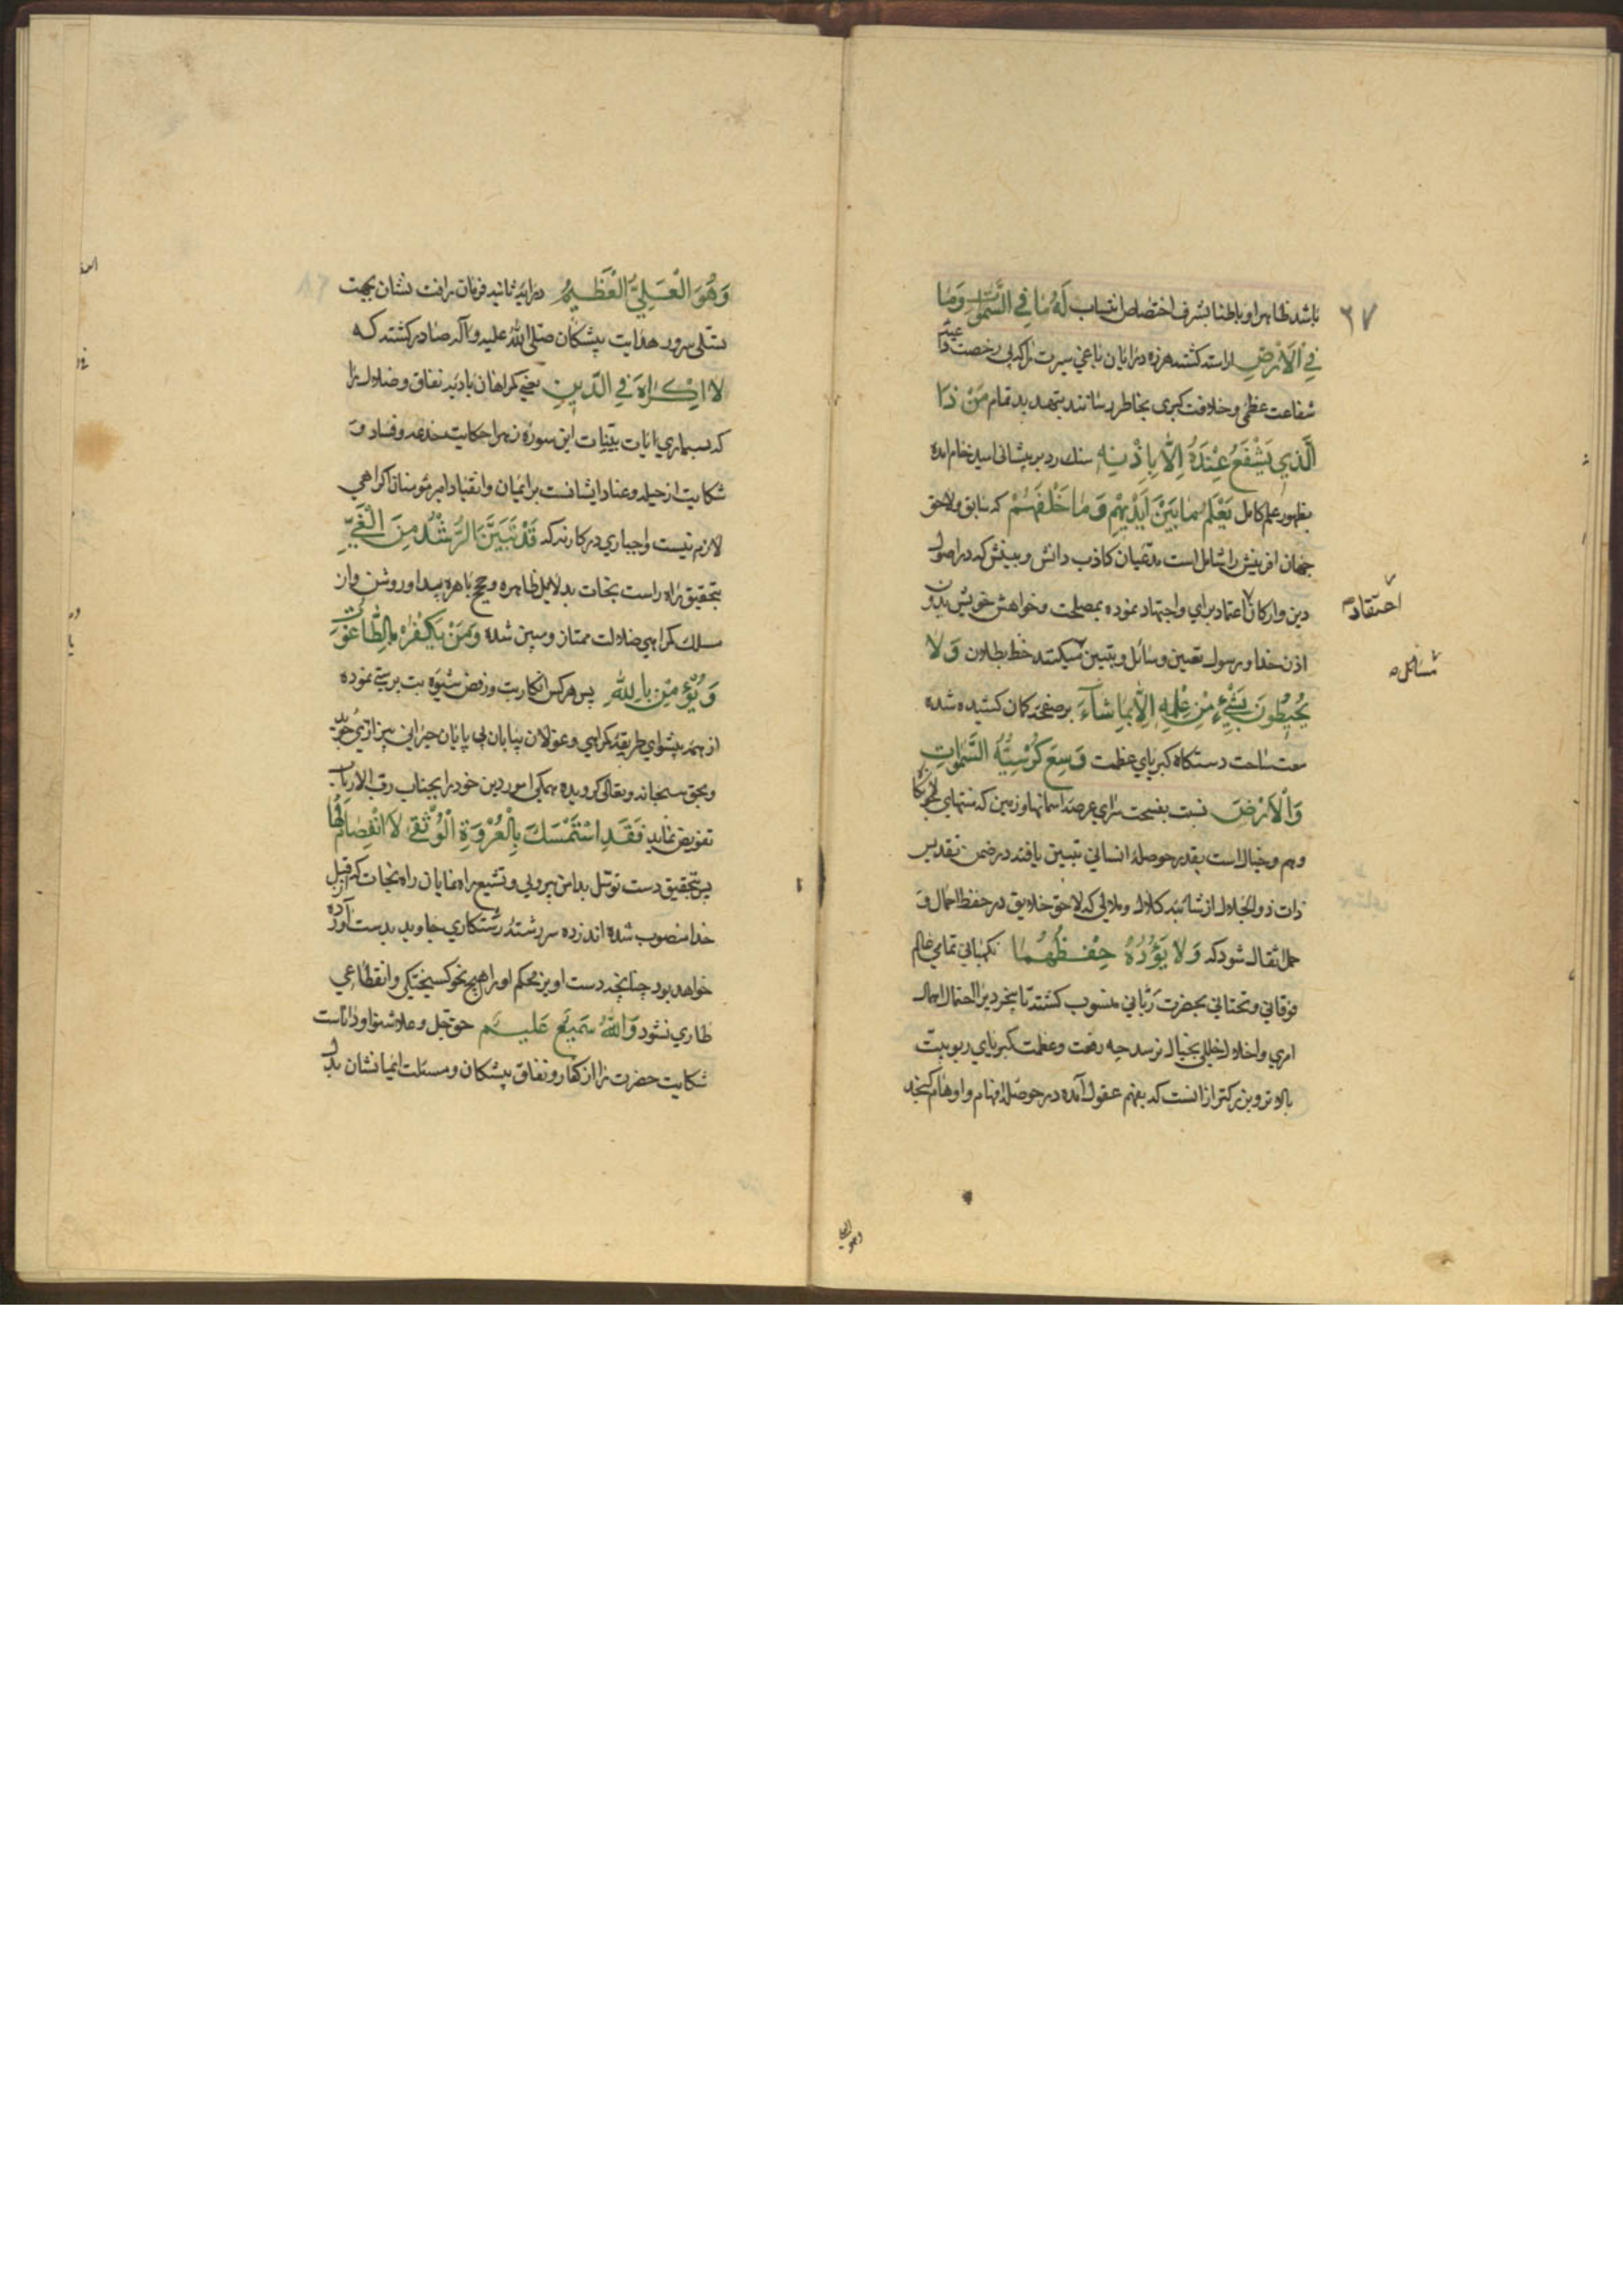 ٣٧
باشد ظاهرا و باطنا بشرف اختصاص انتساب لَهُ مَا فِي السَّمٰوَاتِ وَمَا
فِي الْاَرْضِ هرزه درایان باغی سیرت را که بی رخصت
شفاعت عظمی و خلافت کبری بخاطر رسانند بتهدید تمام مَنْ ذَا
الَّذِي يَشْفَعُ عِنْدَهُ اِلَّا بِاِذْنِهِ سنك رد بر پیشانی امید خام امده
بظهور علم کامل يَعْلَمُ مَا بَيْنَ اَيْدِيهِمْ وَمَا خَلْفَهُمْ که سابق ولاحق
جهان افرینش را شامل است مدعیان کاذب دانش و بینش که در اصول
دین وارکان اعتماد برای واجتهاد نموده بمصلحت وخواهش خویش بدون
اذن خدا ورسول تعیین وسائل وتبیین میکنند خط بطلان وَلَا
يُحِيطُونَ بِشَيْءٍ مِنْ عِلْمِهِ اِلَّا بِمَا شَاءَ بر صفحه کمان کشیده شده
دستکاه کبریای عظمت وَسِعَ كُرْسِيُّهُ السَّمٰوَاتِ
وَالْاَرْضَ نسبت بفسحت سرای عرصه اسمانها وزمین که منتهای
وهم وخیال است بقدر حوصله انسانی تبیین یافته در ضمن تقدیس
ذات ذو الجلال از شائبه کلال وملالی که لاحق خلایق در حفظ احمال و
حمل اثقال شود که وَلَا يَؤُدُهُ حِفْظُهُمَا نکهبانی تمامی عالم
فوقانی وتحتانی بحضرت ربانی منسوب کشته تا بخرد بر احتمال اهمال
امری واخلال بخیال نرسد چه رفعت وعظمت کبریای ربوبیت
بالاتر وبزرکتر از انست که بفهم عقول آمده در حوصله افهام واوهام کنجد
وَهُوَ الْعَلِيُّ الْعَظِيمُ در ایه ثانیه فرمان رافت نشان بجهت
تسلی سرور هدایت پیشکان صلی الله علیه وآله صادر کشته که
لَا اِكْرَاهَ فِي الدِّينِ یعنی کمراهان بادیه نفاق وضلال را
که بسیاری ایات بینات این سوره زهرا حکایت خدعه وفساد و
شکایت از حیله وعناد ایشانست بر ایمان وانقیاد امیر مؤمنان اکراهی
لازم نیست واجباری در کار نه که قَدْ تَبَيَّنَ الرُّشْدُ مِنَ الْغَيِّ
بتحقیق راه راست نجات بدلایل ظاهره وحجج باهره پیدا وروشن واز
مسلك کمراهی ضلالت ممتاز ومبین شده وَمَنْ يَكْفُرْ بِالطَّاغُوتِ
وَيُؤْمِنْ بِاللّٰهِ پس هر کس انکار بت ورفض شیوه بت پرستی نموده
از همه پیشوای طریقه کمراهی وغولان بیابان بی پایان حیرانی بیزاری
وبحق سبحانه وتعالی کرویده همکی امور دین خود را بجناب رب الارباب
تفویض نماید فَقَدِ اسْتَمْسَكَ بِالْعُرْوَةِ الْوُثْقٰى لَا انْفِصَامَ لَهَا
پس بتحقیق دست توسل بدامن پیروی وتشیع راه نمایان راه نجات که از قبل
خدا منصوب شده اند زده سررشته رستکاری جاوید بدست آورده
خواهد بود چنانچه دست اویز محکم او را هیچ نحو کسیختکی وانقطاعی
طاری نشود وَاللّٰهُ سَمِيعٌ عَلِيمٌ حق جل وعلا شنوا وداناست
شکایت حضرت را از کفار ونفاق پیشکان ومسئلت ایمانشان